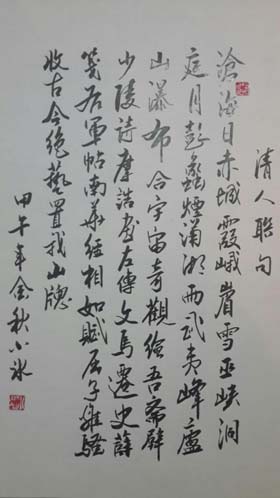 清人联句
滄海日赤城霞峨眉雪巫峡洞
庭月彭蠡煙瀟湘雨武夷峰廬
山瀑布合宇宙奇觀繪吾齋壁
少陵詩摩詰画左傳文馬遷史薛
箋右軍帖南華經相如賦屈子離騷
收古今絶藝置我山牕
甲午年金秋小冰